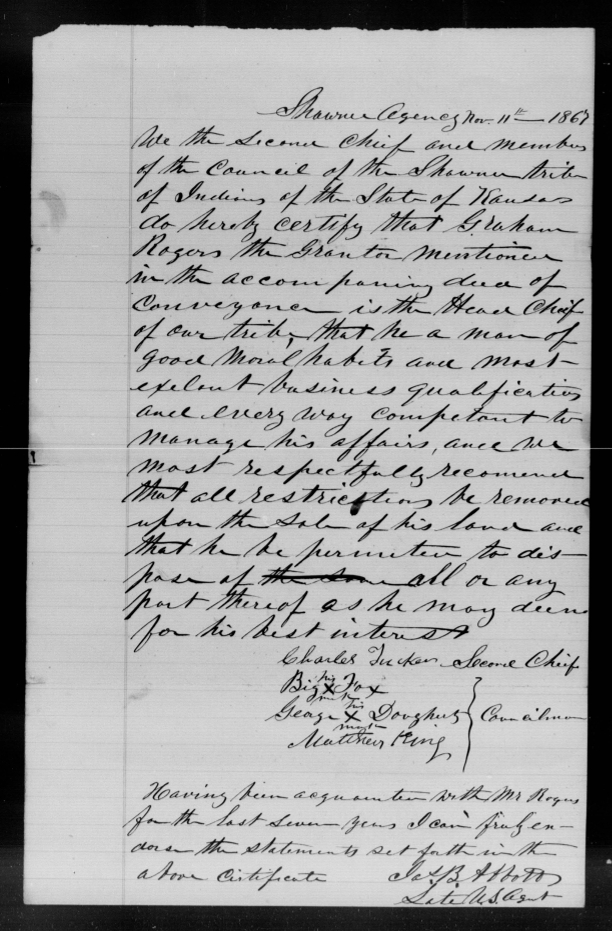 Shawnee Agency Nov. 11th 1867
We the Second Chief and members
of the Council of the Shawnee tribe
of Indians of the State of Kansas
do hereby certify that Graham
Rogers the Grantor mentioned
in the accompaning deed of
Conveyance is the Head Chief
of our tribe, that he a man of
good Moral habits and most
exelant business qualifications
and every way competant to
manage his affairs, and we
most respectfully recomend
that all restrictions be removed
upon the Sale of his land and
that he be permitted to dis-
pose of the same all or any
part thereof as he may deem
for his best interest
Charles Tucker Second Chief
his
Big X Fox
mark
his
George X Dougherty Councilmen
mark
Matthew King
Having been acquainted with Mr Rogers
for the last Seven years I can truly en-
dorse the statements set forth in the
above Certificate Jas B Abbott
Late U.S. Agent